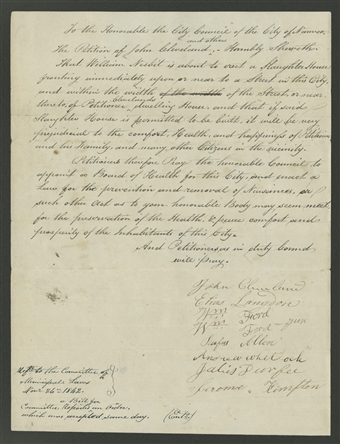 To the Honorable the City Council of the City of
and others
The Petition of John Cleveland, Humbly Sheweth
That William Nesbit is about to erect a Slaughter House
fronting immediately upon or near to a Street in this City,
and within the width of the width of the Street, or near
Clevelands
thereto, of Petitioner dwelling House and that if said
Slaughter House is permitted to be built, it will be very
prejudicial to the comfort, Health, and happiness of Petitioner
and his Family, and many other Citizens in the vicinity.
Petitioners therefore Pray the honorable Council to
appoint a Board of Health for this City, and enact a
Law for the prevention and removal of Nuisances, or
such other Act as to your honorable Body may seem meet
for the preservation of the Health, peace comfort and
prosperity of the Inhabitants of this City.
And Petitioners as in duty bound
will pray.
John Cleveland
Elias Langdon
Wm Ford
Wm Ford Jun
Allen
Andrew
Julius
Jerome
Refd to the Committee of
Municipal Laws
Nov 26th 1842.
a Bill for
Committee Reports an Order
which was accepted same day.